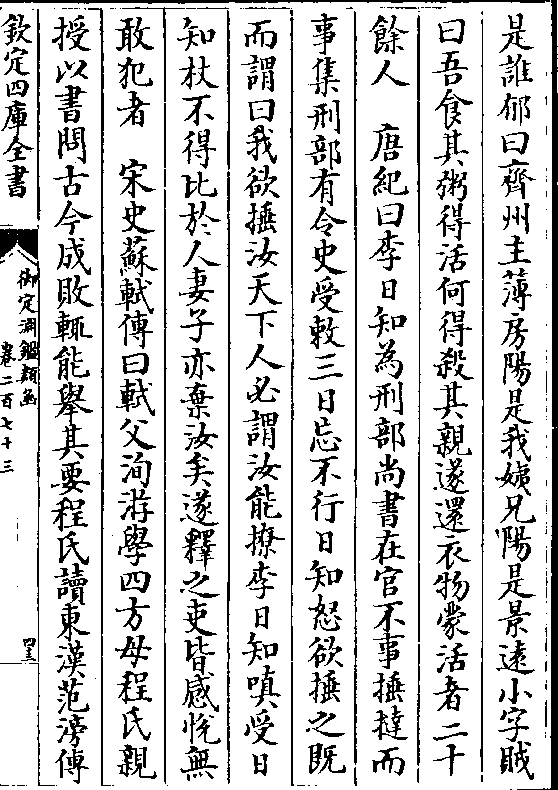 是誰郁曰齊州主薄房陽是我姨兄陽是景遠小字賊
曰吾食其粥得活何得殺其親遂還衣物蒙活者二十
餘人　唐紀曰李日知為刑部尚書在官不事捶撻而
事集刑部有令史受敕三日忘不行日知怒欲捶之既
而謂曰我欲捶汝天下人必謂汝能撩李日知嗔受日
知杖不得比於人妻子亦棄汝矣遂釋之吏皆感悅無
敢犯者　宋史蘇軾傳曰軾父洵游學四方母程氏親
授以書問古今成敗輒能舉其要程氏讀東漢范滂傳
欽定四庫全書
御定淵鑑類函
卷二百七十三
四三